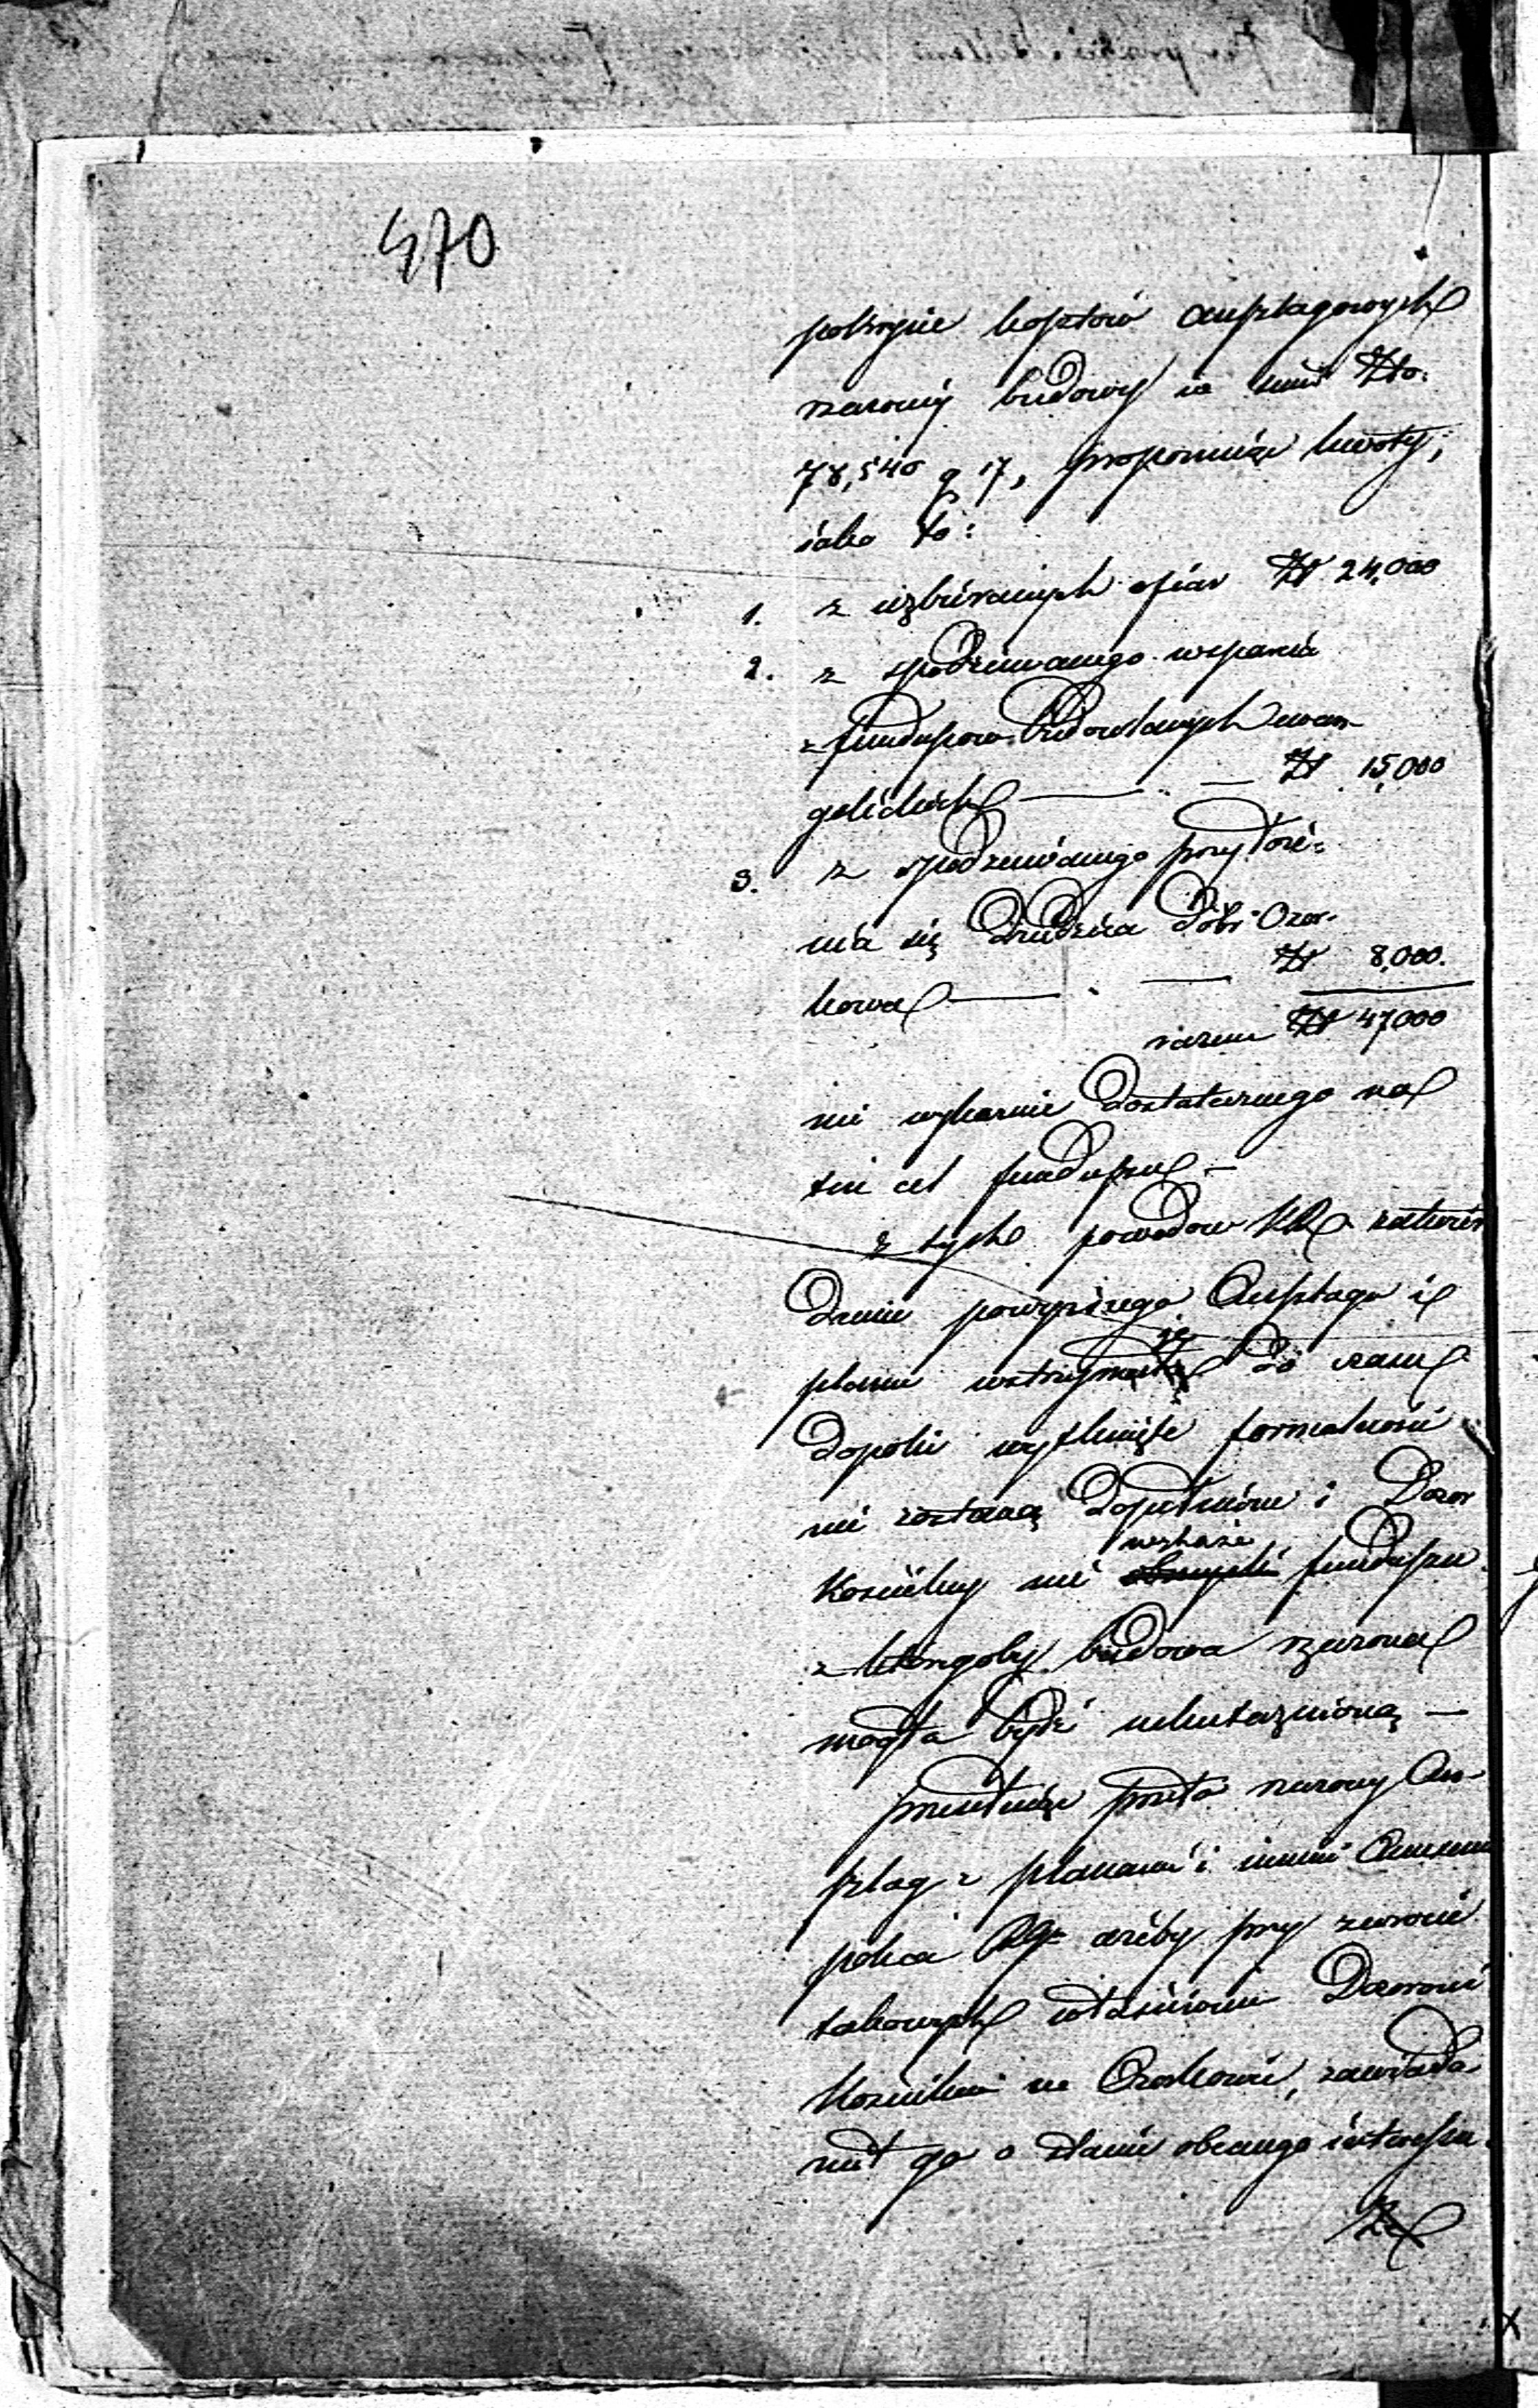 470
pokrycie kosztów anszlagowych
rzeczonéy budowy w sumie Złp.
78,540 g 17, proponuiąc kwoty,
iako to:
1. z uzbieranych ofiar Zł 24,000
2. z spodziewanego wsparcia
z funduszow budowlanych ewan-
gelickich — — Zł 15,000
3. z spodziewanego przyłoże-
nia się Dziedzica dóbr Ozor-
kowa — — Zł 8,000.
razem Zł 47,000
nie wykazuie dostatecznego na
ten cel funduszu —
z tych powodow KR zatwier
dzenie powyższego Anszlagu i
planu wstrzymuie do czasu
dopoki wytknięte formalności
nie zostaną dopełnione i Dozor
wskaże
Kościelny nie obmyśli funduszu
z któregoby budowa rzeczona
mogła bydź uskutecznioną —
przesyłaiąc przeto rzeczony An-
szlag z planami i innemi Annexami
poleca ażeby przy zwrocie
takowych właściwemu Dozorowi
Kościelnemu w Ozorkowie, zawiada
mił go o stanie obecnego interessu.